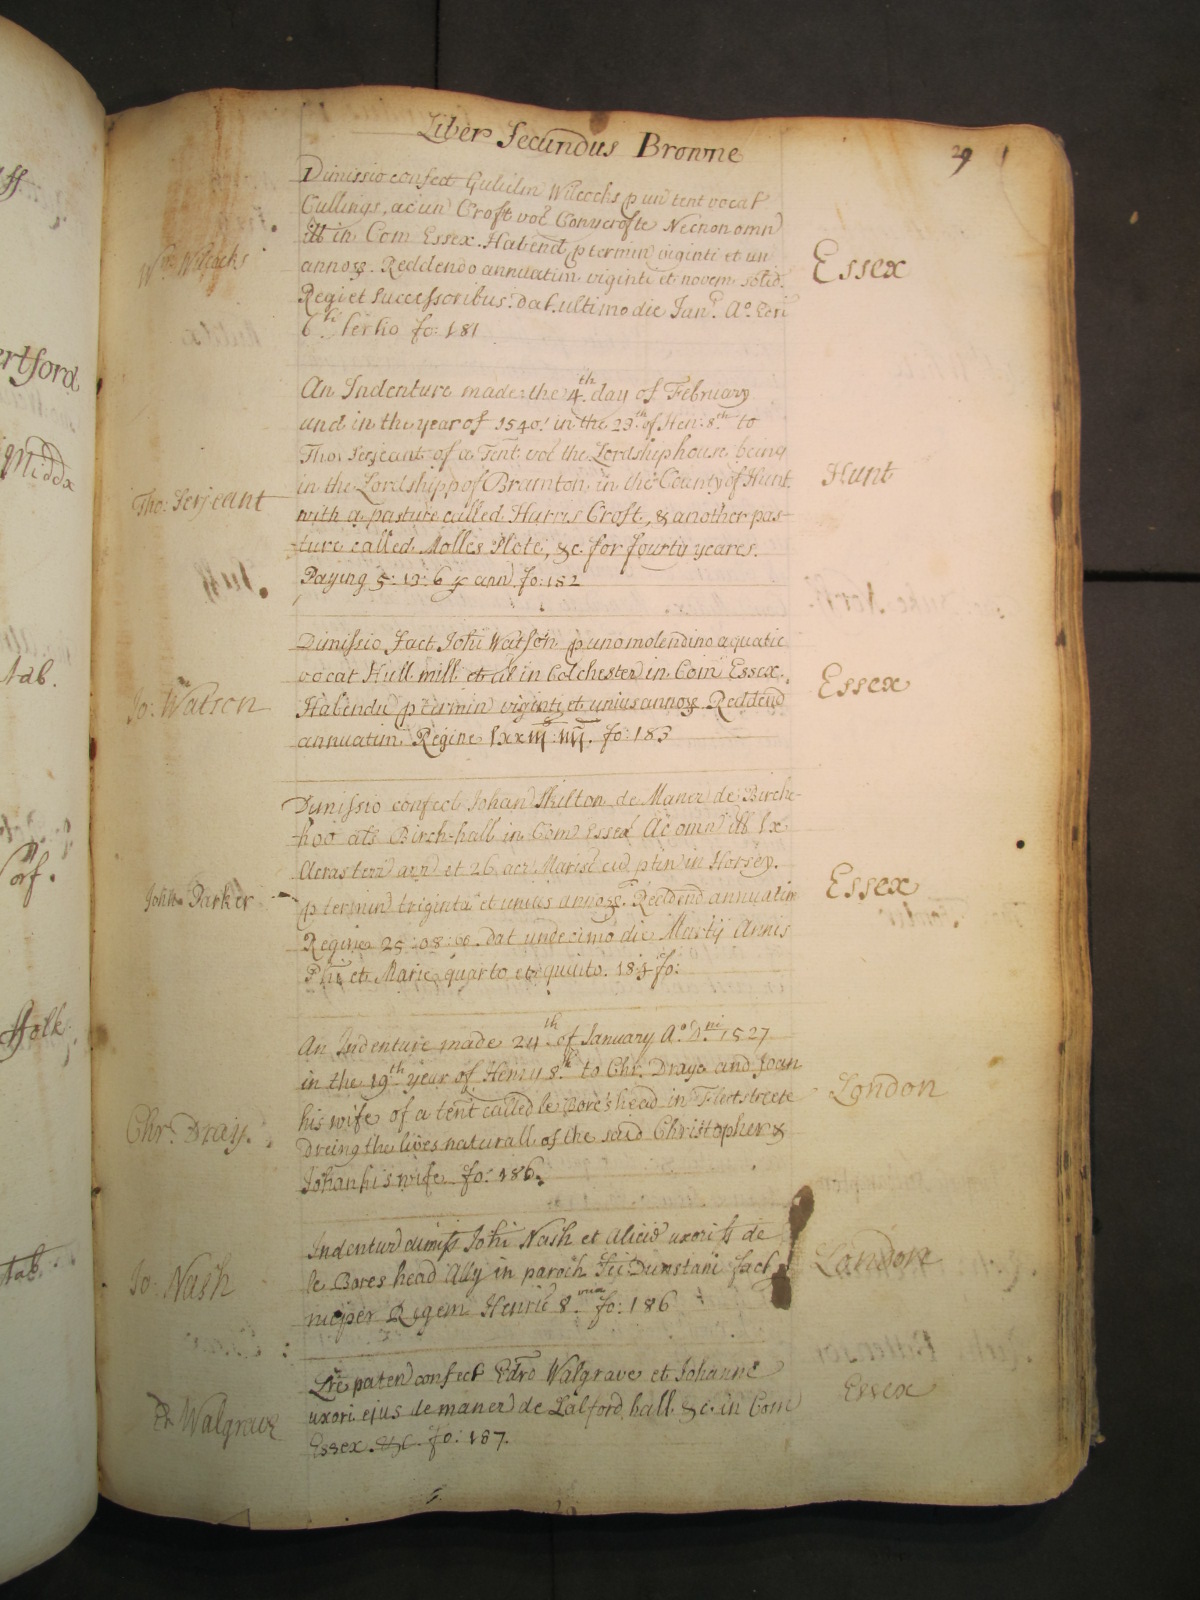 Liber Secundus Browne
29
Dimissio confect Gulielm Wilcocks p un tent vocat
Cullings, ac un Croft voc Conycrofte Necnon omn
ill in Com Essex. Habend p termin viginti et un
annoȝ. Reddendo annuatim viginti et novem solid.
Regi et Successoribus. dat. ultimo die Jan. Ao.
6ti tertio fo: 181
Wm Wilcocks
Essex
An Indenture made the 4th day of February
and in the year of 1540. in the 23th of Hen: 8th to
Tho: Serjeant of a Tent voc the Lordshiphouse being
in the Lordshipp of Bramton in the County of Hunt
with a pasture called Harris Croft, & another pas-
ture called Molles Plote, &c. for fourty yeares.
Paying 5: 13: 6 p ann. fo: 182
Tho: Serjeant
Hunt
Dimissio Fact Johi Watson p uno molendino aquatic
vocat Hull mill et al in Colchester in Com Essex.
Habend p termin viginti et unius annoȝ Reddend
annuatim Regine lxxiij: iiij. fo: 183
Jo: Watson
Essex
Dimissio confect Johan Skilton de Maner de Birche-
hoo als Birch-hall in Com Essex Ac omn ill lx
Acras terr arr et 26 acr Marisc eid ptin in Horsey.
p termin triginta et unius annoȝ. Reddend annuatim
Regine 25: 08: 00. dat undecimo die Martij Annis
Phi et Marie quarto et quinto. 184 fo:
John Parker
Essex
An Indenture made 24th of January Ao. Dni 1527
in the 19th year of Henry 8th to Chr. Draye and Joan
his wife of a tent called le Bore's head in Fleetstreete
Dreing the lives naturall of the said Christopher &
Johan his wife fo: 186.
Chr: Dray.
London
Indentur dimiss Johi Nash et Alicie uxori ss de
le Bores head Ally in paroch Sci Dunstani fact
nuper Regem Henric 8.vum fo: 186
Jo: Nash
London
Lre paten confect Edro Walgrave et Johanne
uxori ejus de maner de Lalford hall &c. in Com
Essex. &c. fo: 187.
Walgrave
Essex